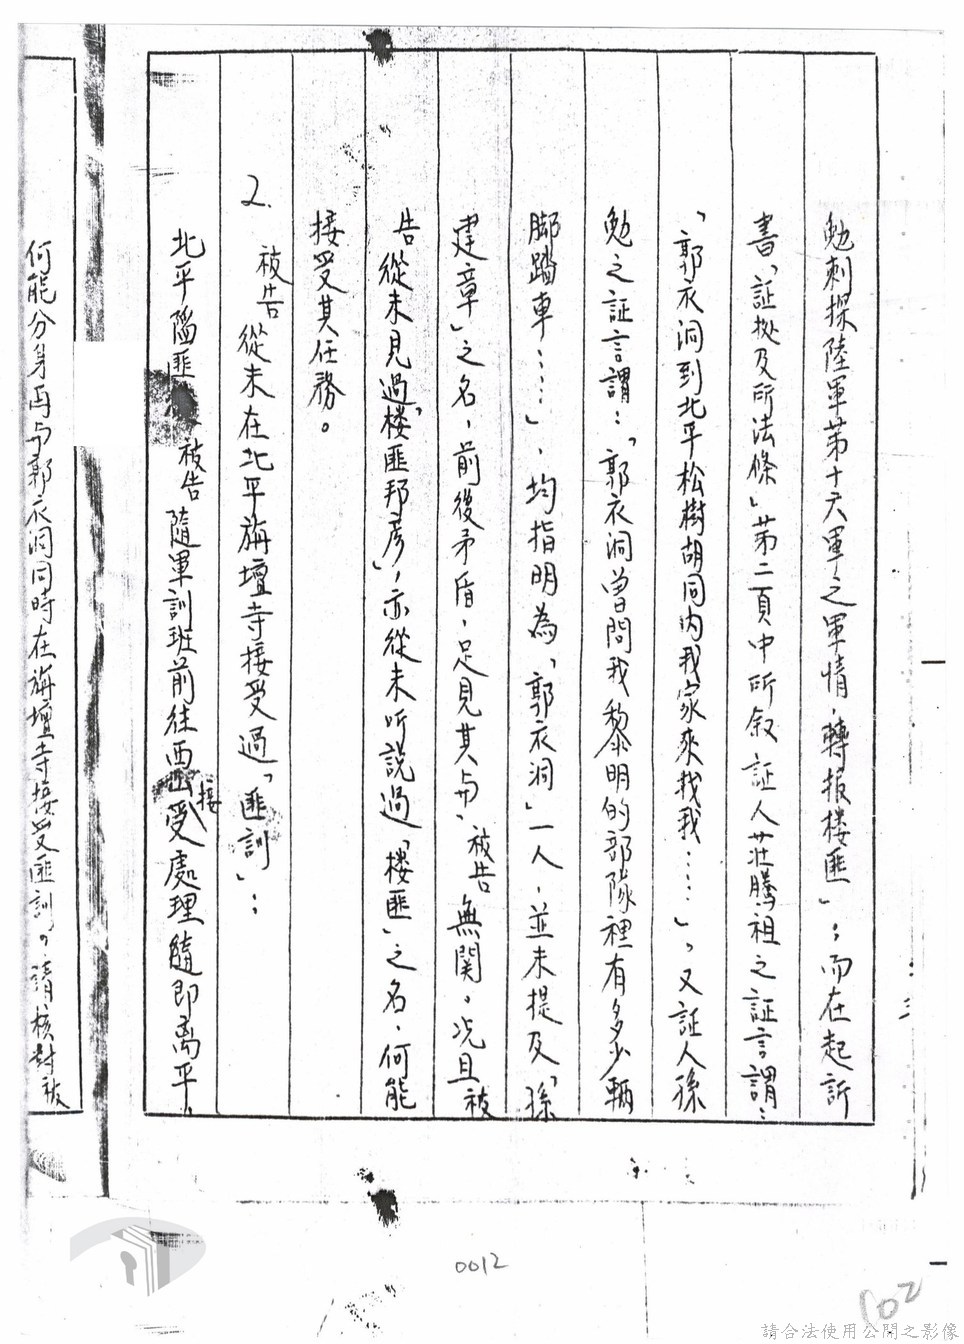 勉刺探陸軍第十六軍之軍情，轉报楼匪」；而在起訴
書「証拠及所法條」第二頁中所叙証人莊騰祖之証言謂：
「郭衣洞到北平松樹胡同内我家來找我……」，又証人孫
勉之証言謂：「郭衣洞曾問我黎明的部隊裡有多少輛
脚踏車……」，均指明為「郭衣洞」一人，並未提及「孫
建章」之名，前後矛盾，足見其与被告無関。况且被
告從未見過「楼匪邦彦」，亦從未听説過「楼匪」之名，何能
接受其任務。
2. 被告從未在北平旃壇寺接受過「匪訓」：
北平陷匪 被告隨軍訓班前往西直接受處理隨即离平，
何能分身再与郭衣洞同時在旃壇寺接受匪訓。請核对被
0012
102
請合法使用公開之影像